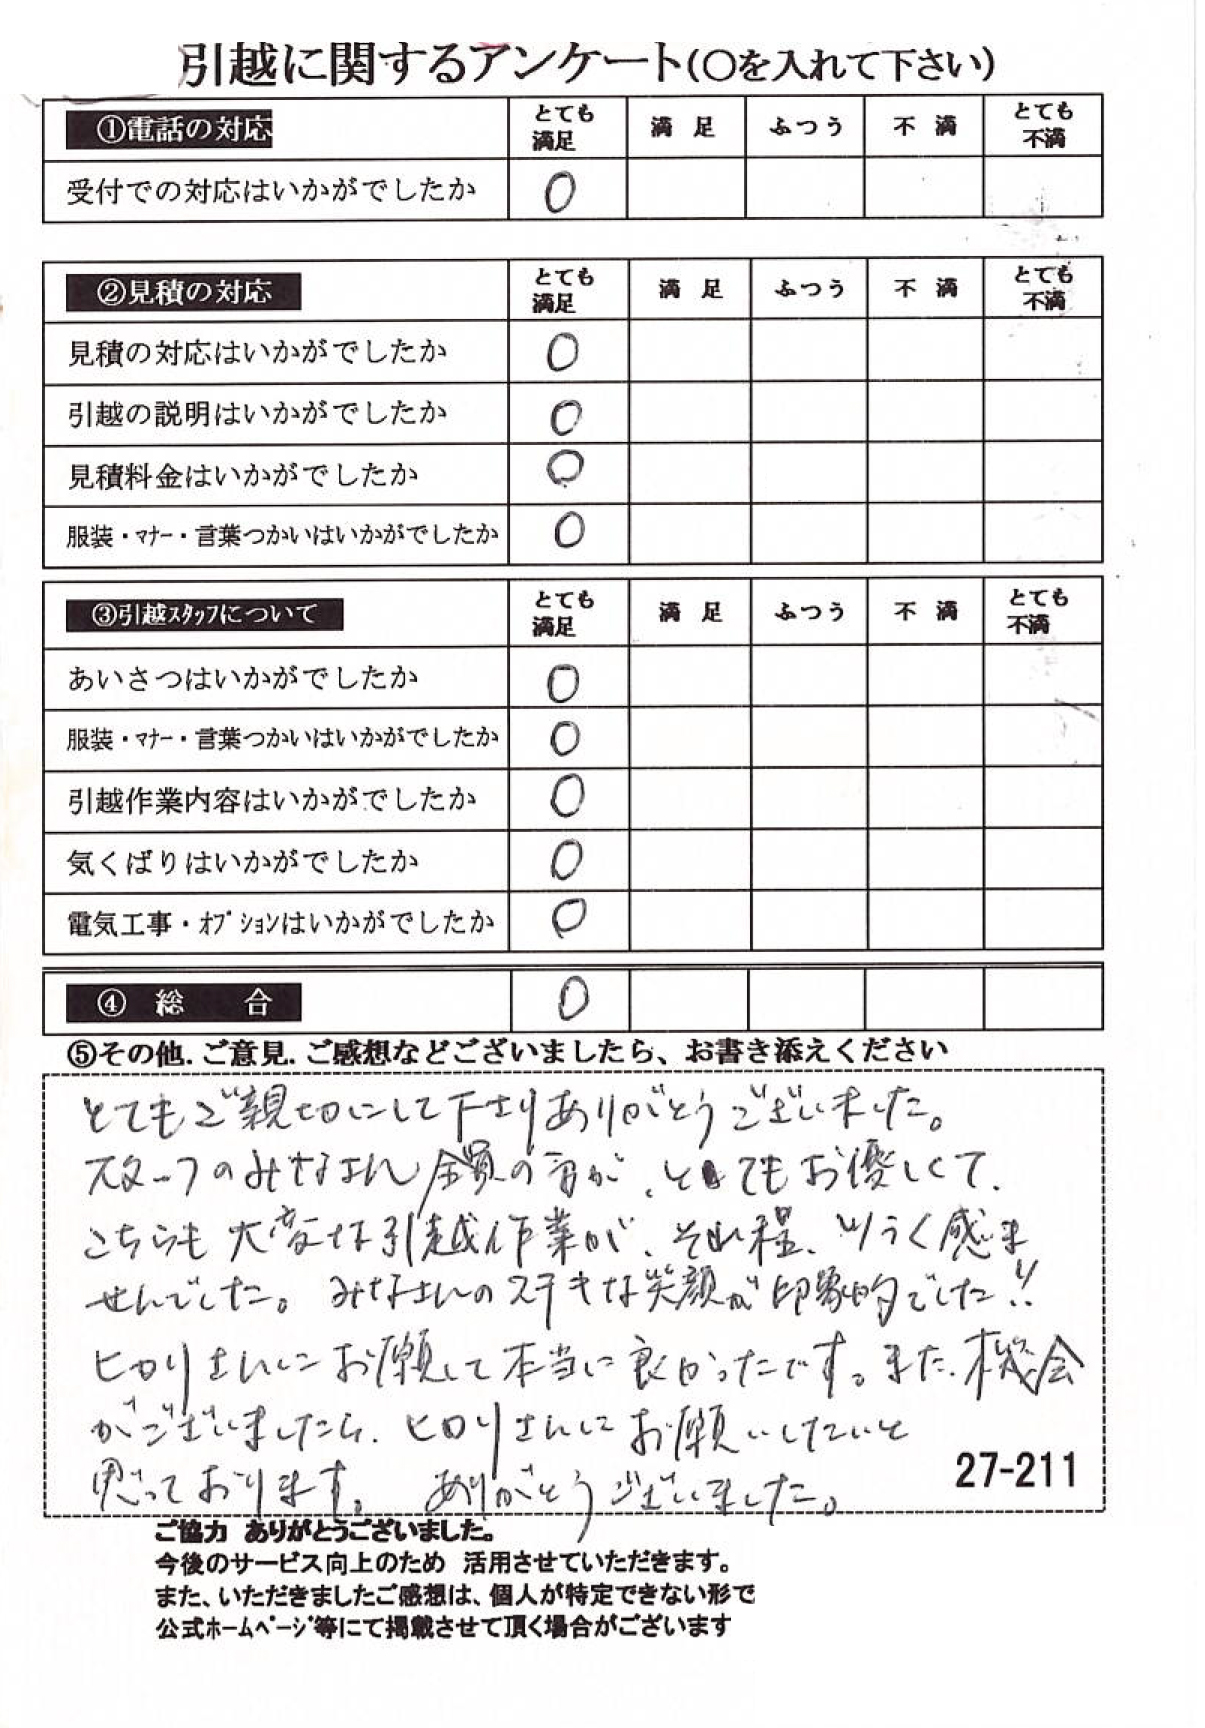 引越に関するアンケート(〇を入れて下さい)
①電話の対応 とても満足 満足 ふつう 不満 とても不満
受付での対応はいかがでしたか ○
②見積の対応 とても満足 満足 ふつう 不満 とても不満
見積の対応はいかがでしたか ○
引越の説明はいかがでしたか ○
見積料金はいかがでしたか ○
服装・マナー・言葉つかいはいかがでしたか ○
③引越スタッフについて とても満足 満足 ふつう 不満 とても不満
あいさつはいかがでしたか ○
服装・マナー・言葉つかいはいかがでしたか ○
引越作業内容はいかがでしたか ○
気くばりはいかがでしたか ○
電気工事・オプションはいかがでしたか ○
④ 総 合 ○
⑤その他.ご意見.ご感想などございましたら、お書き添えください
とてもご親切にして下さりありがとうございました。
スタッフのみなさん全員の方が、とてもお優しくて、
こちらも大変な引越作業が、それ程、つらく感ま
せんでした。みなさんのステキな笑顔が印象的でした!!
ヒカリさんにお願して本当に良かったです。また、機会
がございましたら、ヒカリさんにお願いしたいと
思っております。 ありがとうございました。
27-211
ご協力 ありがとうございました。
今後のサービス向上のため 活用させていただきます。
また、いただきましたご感想は、個人が特定できない形で
公式ホームページ等にて掲載させて頂く場合がございます